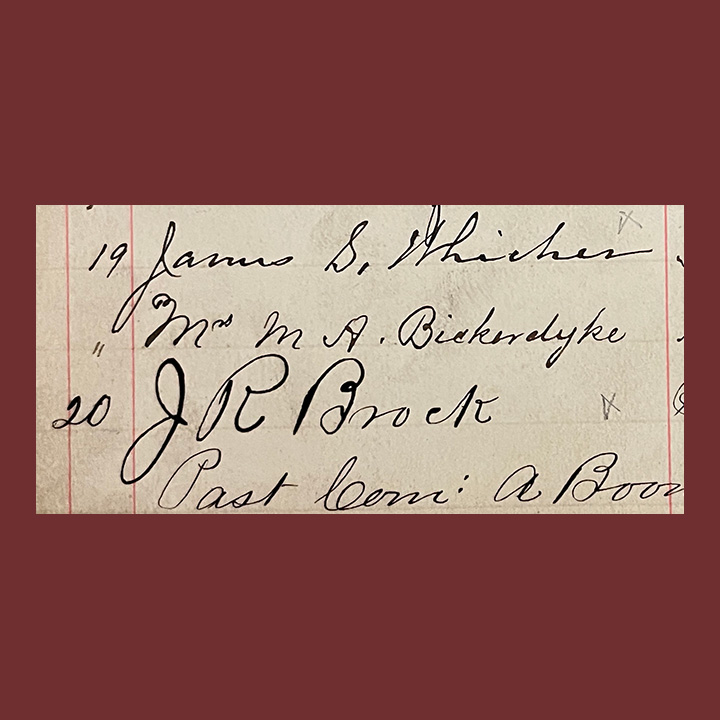 19 James S. Whicher
" Mrs M A. Bickerdyke
20 J R Brock
Past Com: A